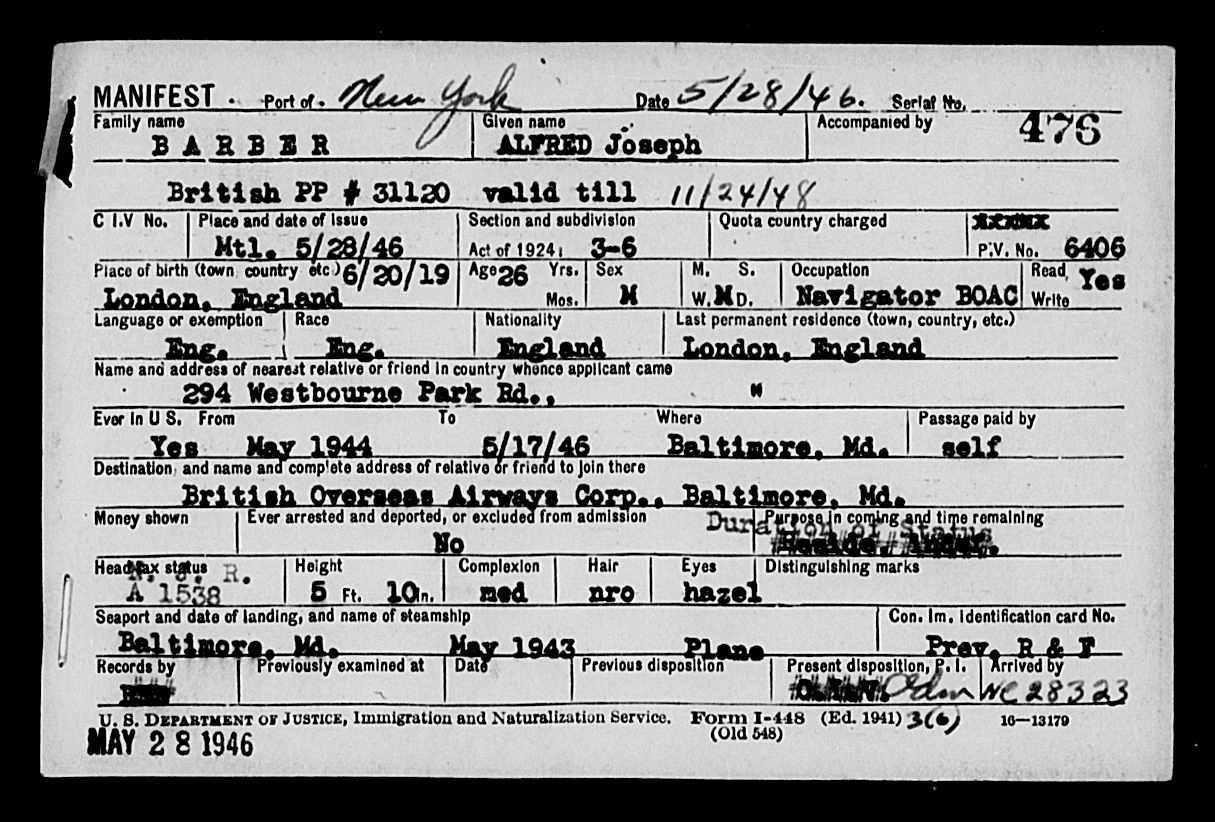 MANIFEST . Port of . New York Date 5/28/46. Serial No.
Family name Given name Accompanied by 476
BARBER ALFRED Joseph
British PP # 31120 valid till 11/24/48
C I.V No. Place and date of issue Section and subdivision Quota country charged
Mtl. 5/28/46 Act of 1924: 3-6 P.V. No. 6406
Place of birth (town country etc) 6/20/19 Age 26 Yrs. Sex M. S. Occupation Read Yes
London, England Mos. M W. M D. Navigator BOAC Write
Language or exemption Race Nationality Last permanent residence (town, country, etc.)
Eng. Eng. England London, England
Name and address of nearest relative or friend in country whence applicant came
294 Westbourne Park Rd., "
Ever in U S. From To Where Passage paid by
Yes May 1944 5/17/46 Baltimore, Md. self
Destination, and name and complete address of relative or friend to join there
British Overseas Airways Corp., Baltimore, Md.
Money shown Ever arrested and deported, or excluded from admission Purpose in coming and time remaining
No Duration of Status
Head tax status Height Complexion Hair Eyes Distinguishing marks
N. S. R.
A 1538 5 Ft. 10 In. med nro hazel
Seaport and date of landing, and name of steamship Con. Im. Identification card No.
Baltimore, Md. May 1943 Plane Prev. R & F
Records by Previously examined at Date Previous disposition Present disposition, P. I. Arrived by
Adm NC 28323
U. S. DEPARTMENT OF JUSTICE, Immigration and Naturalization Service. Form I-448 (Ed. 1941) 3(6) 16—13179
(Old 548)
MAY 28 1946